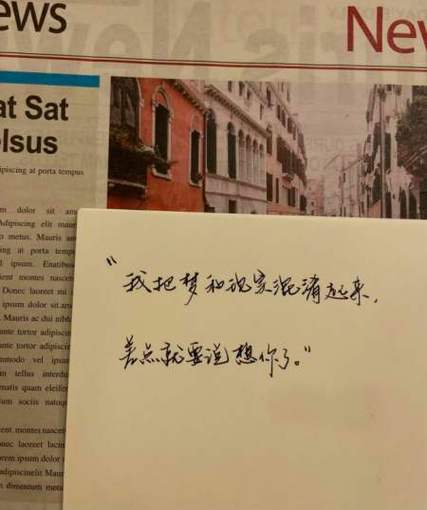 ews
New
at Sat
elsus
ipiscing at porta tempus
m dolor sit am
Adipiscing elit maur
o metus. Mauris an
ing at porta temp
l ipsum. Enatibus
ient montes nascer
Donec laoreet mi
ipsum dolor sit am
Mauris ac dui nibh
ante tortor adipiscin
ante tortor adipiscin
mmodo vel ipsum
m tellus interdu
natis quam eleifer
um sociis natoqu
ent montes nascer
onec laoreet lacin
orem ipsum dolor
adipiscinelit Maur
m dimentum metu
"我把梦和现实混淆起来,
差点就要说想你了。"